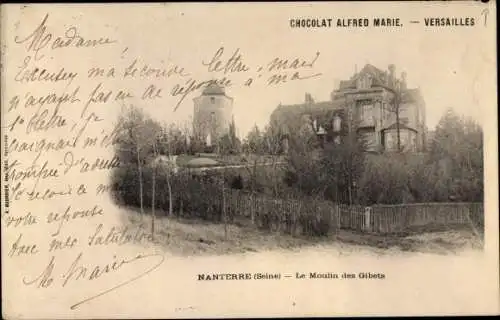 CHOCOLAT ALFRED MARIE. — VERSAILLES
Madame
Excusez ma seconde lettre, mais
n'ayant pas eu de réponse à ma
1e lettre je
craignais m'être
trompée d'adresse
recevoir
votre réponse
Avec mes Salutations
M Marie
NANTERRE (Seine) — Le Moulin des Gibets